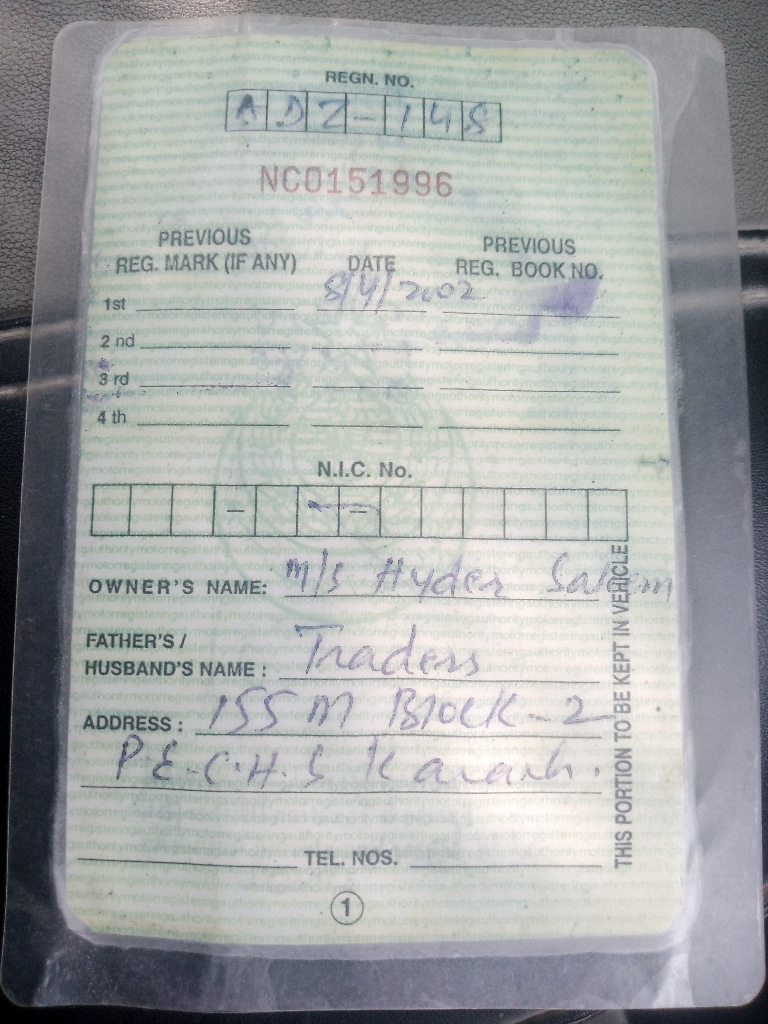 REGN. NO.
ADZ-148
NC0151996
PREVIOUS REG. MARK (IF ANY) DATE PREVIOUS REG. BOOK NO.
1st 8/4/2002
2 nd
3 rd
4 th
N.I.C. No.
OWNER'S NAME: M/s Hyder Saleem
FATHER'S /
HUSBAND'S NAME : Traders
ADDRESS : 155 M Block-2
P.E.C.H.S Karachi.
TEL. NOS.
1
THIS PORTION TO BE KEPT IN VEHICLE